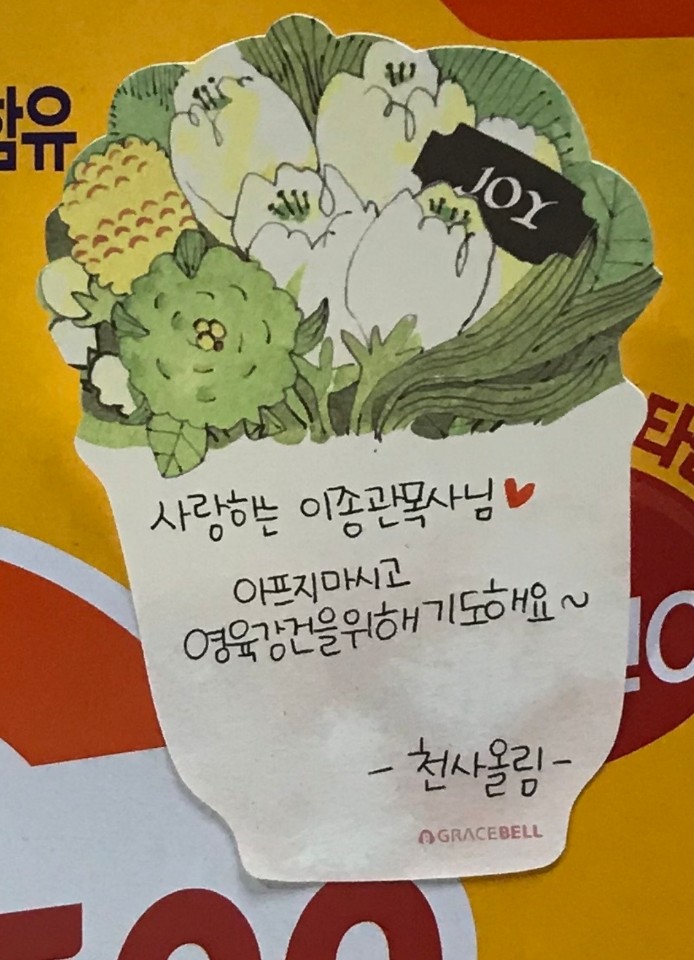 함유
JOY
사랑하는 이종관목사님
아프지마시고
영육강건을위해기도해요~
- 천사올림-
GRACEBELL